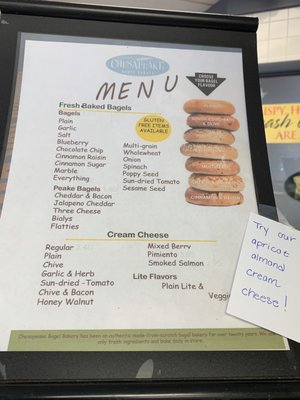 CHESAPEAKE
MENU
CHOOSE
YOUR BAGEL
FLAVOUR
Fresh-Baked Bagels
Bagels
Plain
Garlic
Salt
Blueberry
Chocolate Chip
Cinnamon Raisin
Cinnamon Sugar
Marble
Everything
Multi-grain
Wholewheat
Onion
Spinach
Poppy Seed
Sun-dried Tomato
Sesame Seed
GLUTEN
FREE ITEMS
AVAILABLE
Peake Bagels
Cheddar & Bacon
Jalapeno Cheddar
Three Cheese
Bialys
Flatties
Cream Cheese
Regular
Plain
Chive
Garlic & Herb
Sun-dried -Tomato
Chive & Bacon
Honey Walnut
Mixed Berry
Pimiento
Smoked Salmon
Lite Flavors
Plain Lite &
Veggie
Chesapeake Bagel Bakery has been an authentic made-from-scratch bagel bakery for over twenty years. We
only fresh ingredients and bake daily in store.
Try our
apricot
almond
cream
cheese!
ARE